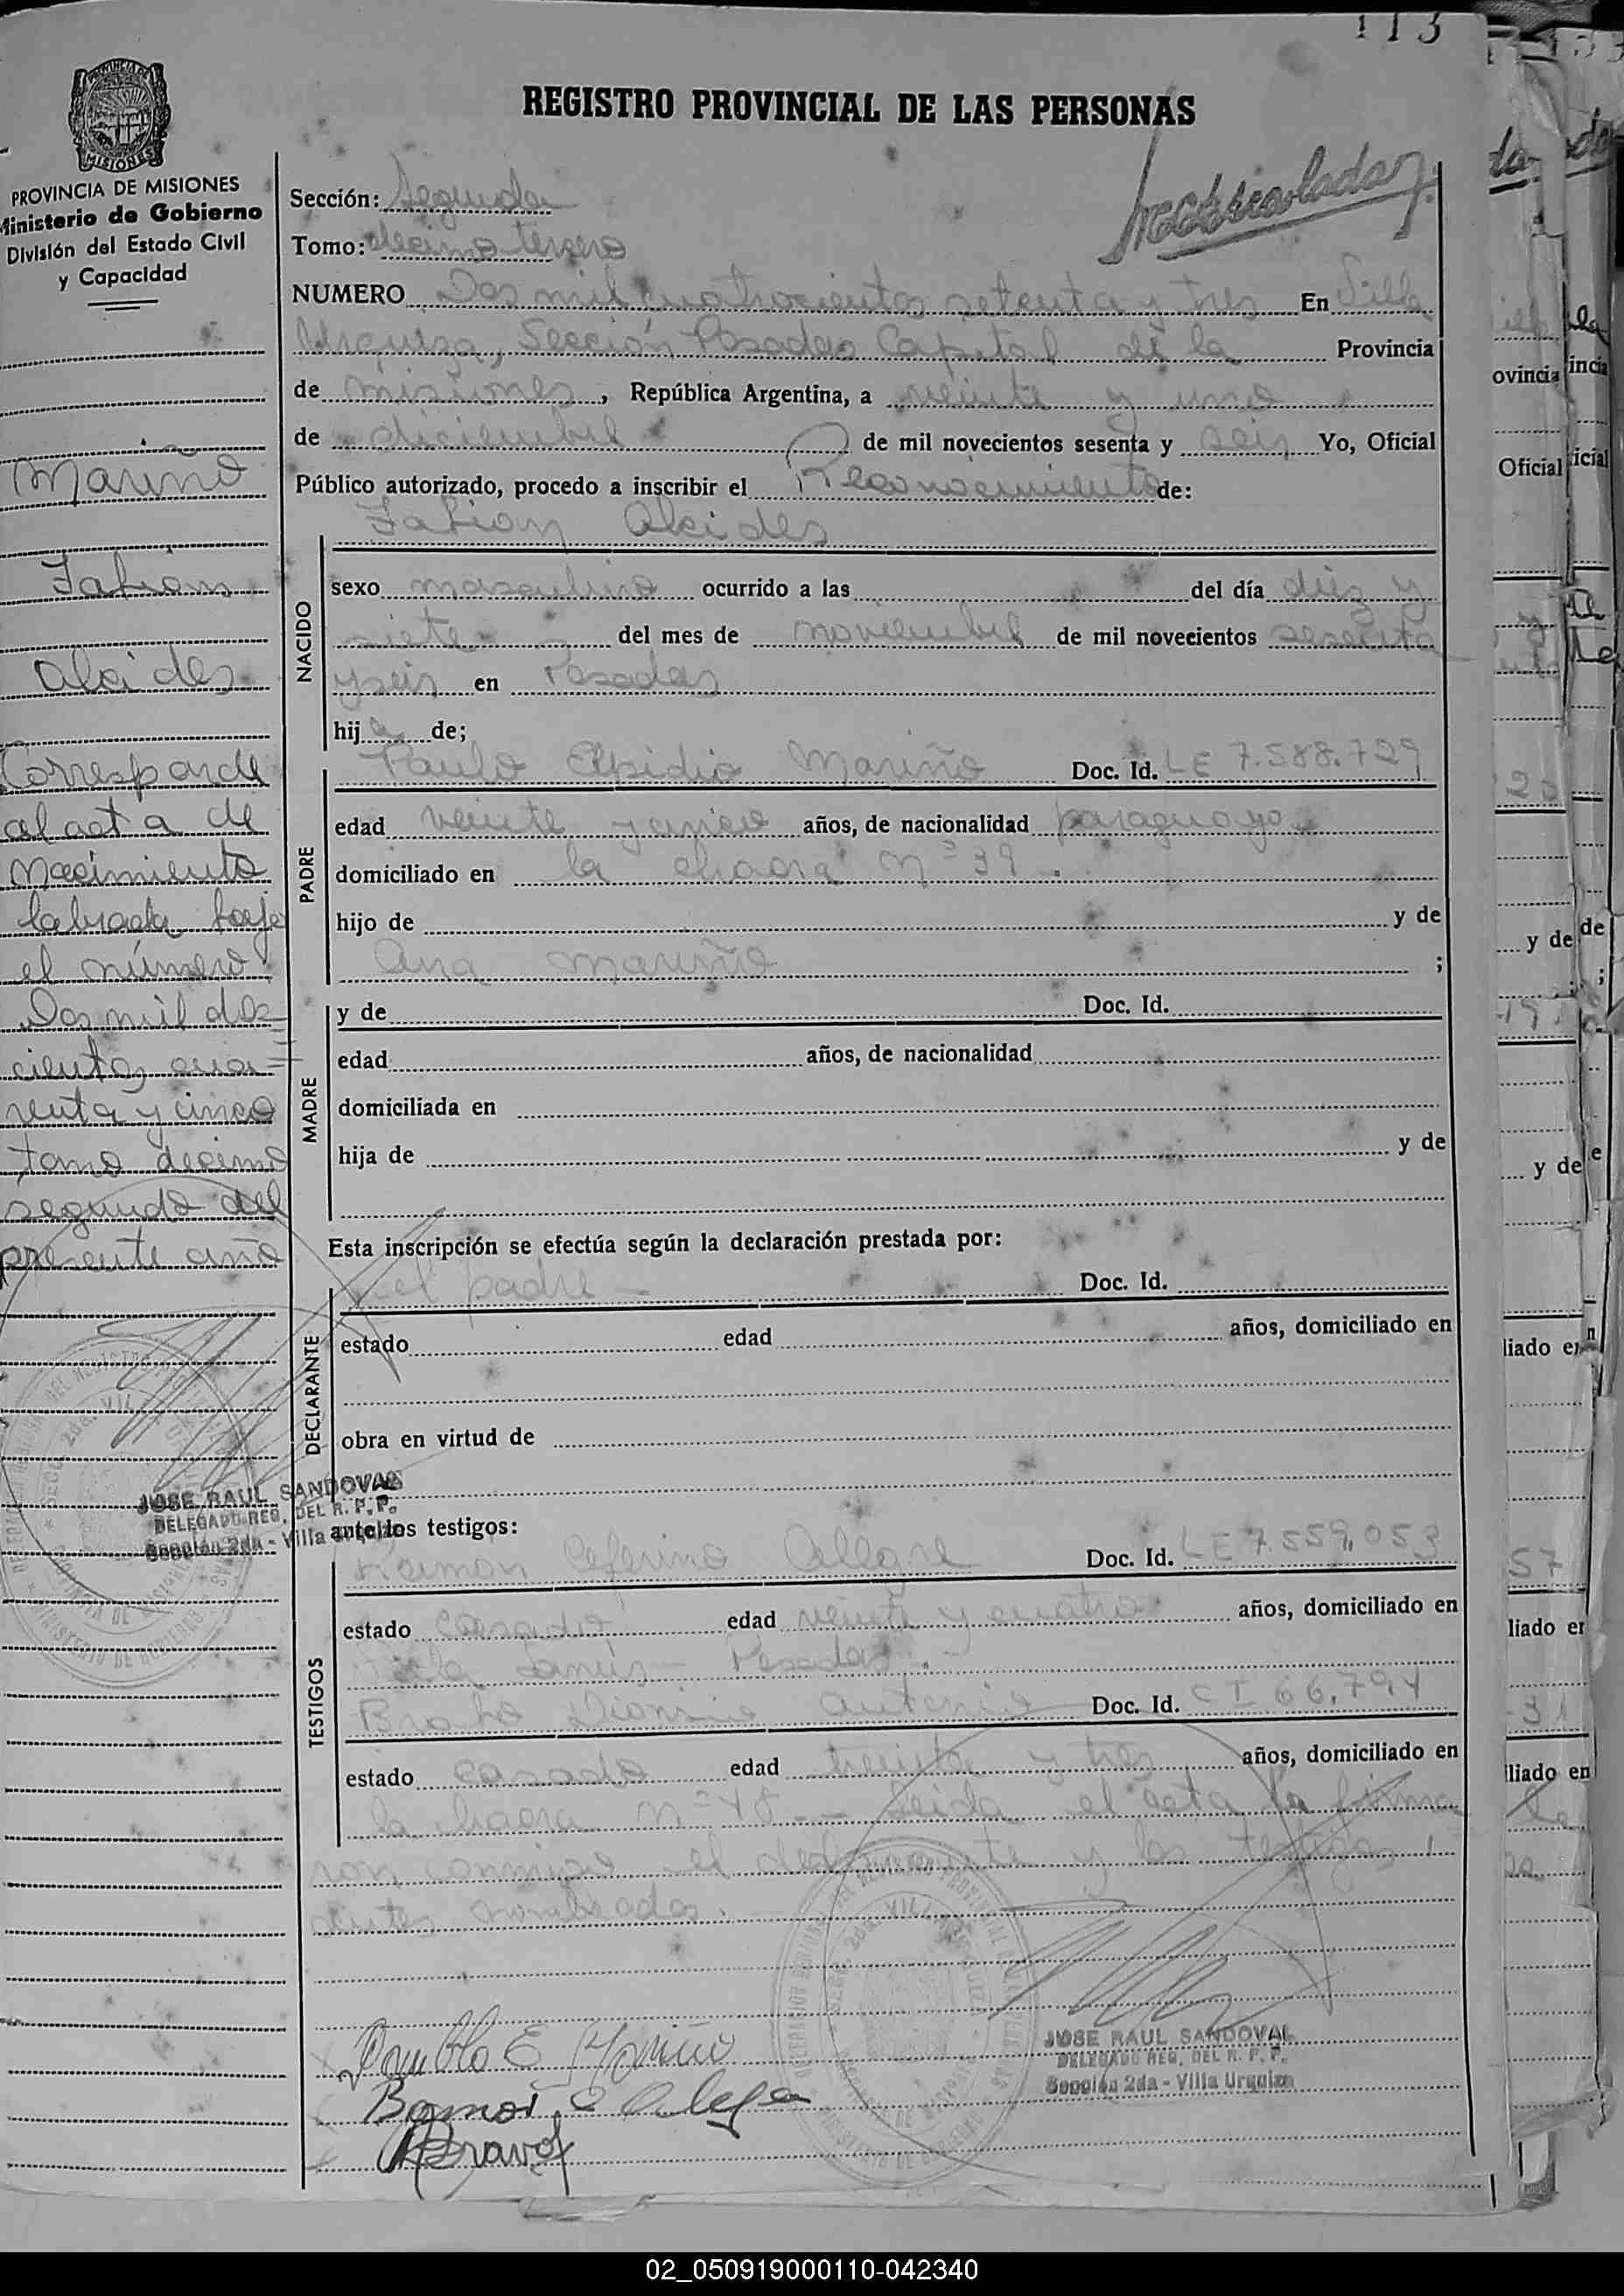 113
REGISTRO PROVINCIAL DE LAS PERSONAS
PROVINCIA DE MISIONES
Ministerio de Gobierno
División del Estado Civil
y Capacidad
Sección: Segunda
Tomo: decimo tercero
NUMERO Dos mil cuatrocientos setenta y tres En Villa
Urquiza, Sección Posadas Capital de la Provincia
de misiones, República Argentina, a veinte y uno
de diciembre de mil novecientos sesenta y seis Yo, Oficial
Público autorizado, procedo a inscribir el Reconocimiento de:
Fabian Alcides
NACIDO
sexo masculino ocurrido a las del día diez y
siete del mes de noviembre de mil novecientos sesenta
y seis en Posadas
hij de;
PADRE
Paulo Elpidio Mariño Doc. Id. LE 7.588.729
edad veinte y años, de nacionalidad paraguayo
domiciliado en la chacra nº 39.
hijo de y de
Ana Mariño ;
MADRE
y de Doc. Id.
edad años, de nacionalidad
domiciliada en
hija de y de
Esta inscripción se efectúa según la declaración prestada por:
DECLARANTE
el padre Doc. Id.
estado edad años, domiciliado en
obra en virtud de
ante los testigos:
TESTIGOS
Ramon Ceferino Alegre Doc. Id. LE 7.559.053
estado casado edad veinte y cuatro años, domiciliado en
Villa Lanús - Posadas.
Dionisio Antonio Doc. Id. CI 66.794
estado casado edad treinta y tres años, domiciliado en
la chacra nº Leida el acta la firma
ron conmigo el declarante y los testigos
antes nombrados.
Mariño
Fabian
Alcides
Corresponde
al acta de
Nacimiento
labrada bajo
el número
Dos mil dos
cientos cua=
renta y cinco
tomo decimo
segundo del
presente año
JOSE RAUL SANDOVAL
DELEGADO REG. DEL R. P. P.
Sección 2da - Villa Urquiza
JOSE RAUL SANDOVAL
DELEGADO REG. DEL R. P. P.
Sección 2da - Villa Urquiza
Mariño
Bravo
02_050919000110-042340